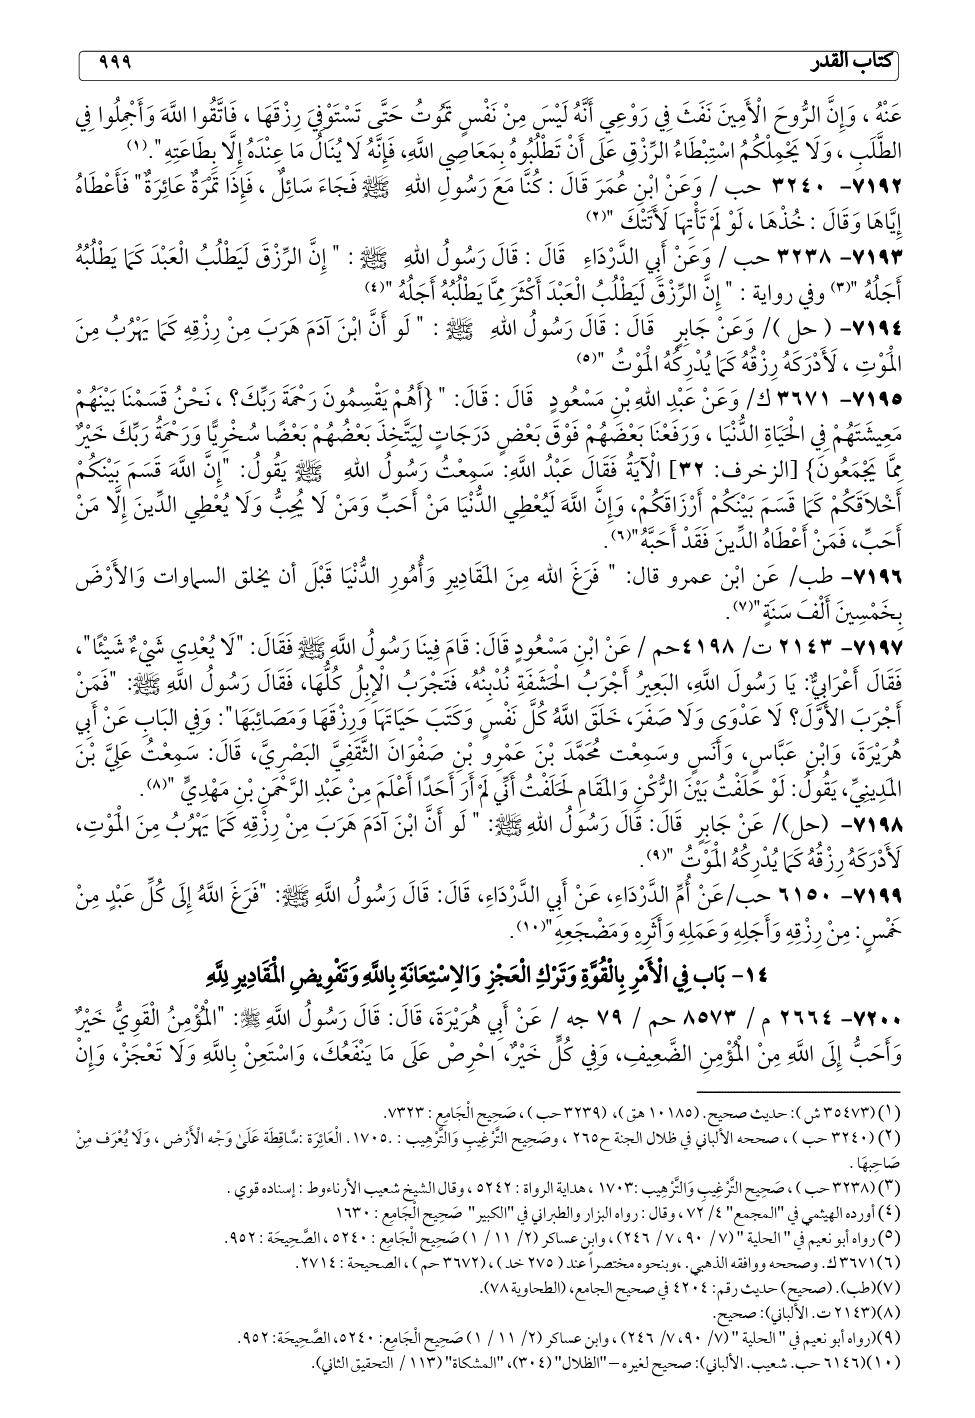 كتاب القدر ٩٩٩
عَنْهُ ، وَإِنَّ الرُّوحَ الْأَمِينَ نَفَثَ فِي رَوْعِي أَنَّهُ لَيْسَ مِنْ نَفْسٍ تَمُوتُ حَتَّى تَسْتَوْفِيَ رِزْقَهَا ، فَاتَّقُوا اللَّهَ وَأَجْمِلُوا فِي
الطَّلَبِ ، وَلَا يَحْمِلْكُمُ اسْتِبْطَاءُ الرِّزْقِ عَلَى أَنْ تَطْلُبُوهُ بِمَعَاصِي اللَّهِ، فَإِنَّهُ لَا يُنَالُ مَا عِنْدَهُ إِلَّا بِطَاعَتِهِ ".(١)
٧١٩٢- ٣٢٤٠ حب / وَعَنْ ابْنِ عُمَرَ قَالَ : كُنَّا مَعَ رَسُولِ اللهِ ﷺ فَجَاءَ سَائِلٌ ، فَإِذَا تَمْرَةٌ عَائِرَةٌ" فَأَعْطَاهُ
إِيَّاهَا وَقَالَ : خُذْهَا ، لَوْ لَمْ تَأْتِهَا لَأَتَتْكَ "(٢)
٧١٩٣- ٣٢٣٨ حب / وَعَنْ أَبِي الدَّرْدَاءِ قَالَ : قَالَ رَسُولُ اللهِ ﷺ : " إِنَّ الرِّزْقَ لَيَطْلُبُ الْعَبْدَ كَمَا يَطْلُبُهُ
أَجَلُهُ "(٣) وفي رواية : " إِنَّ الرِّزْقَ لَيَطْلُبُ الْعَبْدَ أَكْثَرَ مِمَّا يَطْلُبُهُ أَجَلُهُ "(٤)
٧١٩٤- ( حل )/ وَعَنْ جَابِرٍ قَالَ : قَالَ رَسُولُ اللهِ ﷺ : " لَو أَنَّ ابْنَ آدَمَ هَرَبَ مِنْ رِزْقِهِ كَمَا يَهْرُبُ مِنَ
الْمَوْتِ ، لَأَدْرَكَهُ رِزْقُهُ كَمَا يُدْرِكُهُ الْمَوْتُ "(٥)
٧١٩٥- ٣٦٧١ ك/ وَعَنْ عَبْدِ اللهِ بْنِ مَسْعُودٍ قَالَ : قَالَ: " {أَهُمْ يَقْسِمُونَ رَحْمَةَ رَبِّكَ؟ ، نَحْنُ قَسَمْنَا بَيْنَهُمْ
مَعِيشَتَهُمْ فِي الْحَيَاةِ الدُّنْيَا ، وَرَفَعْنَا بَعْضَهُمْ فَوْقَ بَعْضٍ دَرَجَاتٍ لِيَتَّخِذَ بَعْضُهُمْ بَعْضًا سُخْرِيًّا وَرَحْمَةُ رَبِّكَ خَيْرٌ
مِمَّا يَجْمَعُونَ} [الزخرف: ٣٢] الْآيَةُ فَقَالَ عَبْدُ اللَّهِ: سَمِعْتُ رَسُولُ اللهِ ﷺ يَقُولُ: "إِنَّ اللَّهَ قَسَمَ بَيْنَكُمْ
أَخْلَاقَكُمْ كَمَا قَسَمَ بَيْنَكُمْ أَرْزَاقَكُمْ، وَإِنَّ اللَّهَ لَيُعْطِي الدُّنْيَا مَنْ أَحَبَّ وَمَنْ لَا يُحِبُّ وَلَا يُعْطِي الدِّينَ إِلَّا مَنْ
أَحَبَّ، فَمَنْ أَعْطَاهُ الدِّينَ فَقَدْ أَحَبَّهُ"(٦).
٧١٩٦- طب/ عَن ابْن عمرو قال: " فَرَغَ الله مِنَ المَقَادِيرِ وَأُمُورِ الدُّنْيَا قَبْلَ أن يخلق السماوات وَالأَرْضَ
بِخَمْسِينَ أَلْفَ سَنَةٍ"(٧).
٧١٩٧- ٢١٤٣ ت/ ٤١٩٨حم / عَنْ ابْنِ مَسْعُودٍ قَالَ: قَامَ فِينَا رَسُولُ اللَّهِ ﷺ فَقَالَ: "لَا يُعْدِي شَيْءٌ شَيْئًا"،
فَقَالَ أَعْرَابِيٌّ: يَا رَسُولَ اللَّهِ، البَعِيرُ أَجْرَبُ الحَشَفَةِ نُدْبِنُهُ، فَتَجْرَبُ الْإِبِلُ كُلُّهَا، فَقَالَ رَسُولُ اللَّهِ ﷺ: "فَمَنْ
أَجْرَبَ الأَوَّلَ؟ لَا عَدْوَى وَلَا صَفَرَ، خَلَقَ اللَّهُ كُلَّ نَفْسٍ وَكَتَبَ حَيَاتَهَا وَرِزْقَهَا وَمَصَائِبَهَا": وَفِي البَابِ عَنْ أَبِي
هُرَيْرَةَ، وَابْنِ عَبَّاسٍ، وَأَنَسٍ وسَمِعْت مُحَمَّدَ بْنَ عَمْرِو بْنِ صَفْوَانَ الثَّقَفِيَّ البَصْرِيَّ، قَالَ: سَمِعْتُ عَلِيَّ بْنَ
المَدِينِيِّ، يَقُولُ: لَوْ حَلَفْتُ بَيْنَ الرُّكْنِ وَالمَقَامِ لَحَلَفْتُ أَنِّي لَمْ أَرَ أَحَدًا أَعْلَمَ مِنْ عَبْدِ الرَّحْمَنِ بْنِ مَهْدِيٍّ "(٨).
٧١٩٨- (حل)/ عَنْ جَابِرٍ قَالَ: قَالَ رَسُولُ اللهِ ﷺ: " لَو أَنَّ ابْنَ آدَمَ هَرَبَ مِنْ رِزْقِهِ كَمَا يَهْرُبُ مِنَ الْمَوْتِ،
لَأَدْرَكَهُ رِزْقُهُ كَمَا يُدْرِكُهُ الْمَوْتُ "(٩).
٧١٩٩- ٦١٥٠ حب/عَنْ أُمِّ الدَّرْدَاءِ، عَنْ أَبِي الدَّرْدَاءِ، قَالَ: قَالَ رَسُولُ اللَّهِ ﷺ: "فَرَغَ اللَّهُ إِلَى كُلِّ عَبْدٍ مِنْ
خَمْسٍ: مِنْ رِزْقِهِ وَأَجَلِهِ وَعَمَلِهِ وَأَثَرِهِ وَمَضْجَعِهِ"(١٠).
١٤- بَاب فِي الْأَمْرِ بِالْقُوَّةِ وَتَرْكِ الْعَجْزِ وَالِاسْتِعَانَةِ بِاللَّهِ وَتَفْوِيضِ الْمَقَادِيرِ لِلَّهِ
٧٢٠٠- ٢٦٦٤ م / ٨٥٧٣ حم / ٧٩ جه / عَنْ أَبِي هُرَيْرَةَ، قَالَ: قَالَ رَسُولُ اللَّهِ ﷺ: "الْمُؤْمِنُ الْقَوِيُّ خَيْرٌ
وَأَحَبُّ إِلَى اللَّهِ مِنْ الْمُؤْمِنِ الضَّعِيفِ، وَفِي كُلٍّ خَيْرٌ، احْرِصْ عَلَى مَا يَنْفَعُكَ، وَاسْتَعِنْ بِاللَّهِ وَلَا تَعْجَزْ، وَإِنْ
(١)(٣٥٤٧٣ ش): حديث صحيح. (١٠١٨٥ هق)، (٣٢٣٩ حب) ، صَحِيح الْجَامِع : ٧٣٢٣.
(٢)(٣٢٤٠ حب ) ، صححه الألباني في ظلال الجنة ح٢٦٥ ، وصَحِيح التَّرْغِيبِ وَالتَّرْهِيب : .١٧٠٥. الْعَائِرَة :سَّاقِطَة عَلَىٰ وَجْهِ الْأَرْض ، وَلَا يُعْرَف مِنْ
صَاحِبهَا .
(٣)(٣٢٣٨ حب ) ، صَحِيح التَّرْغِيبِ وَالتَّرْهِيب :١٧٠٣ ، هداية الرواة : ٥٢٤٢ ، وقال الشيخ شعيب الأرناءوط : إسناده قوي .
(٤) أورده الهيثمي في "المجمع" ٤/ ٧٢ ، وقال : رواه البزار والطبراني في "الكبير" صَحِيح الْجَامِع : ١٦٣٠
(٥) رواه أبو نعيم في " الحلية " (٧/ ٩٠ ، ٧/ ٢٤٦) ، وابن عساكر (٢/ ١١ / ١) صَحِيح الْجَامِع : ٥٢٤٠ ، الصَّحِيحَة : ٩٥٢.
(٦) ٣٦٧١ ك. وصححه ووافقه الذهبي. ،وبنحوه مختصراً عند ( ٢٧٥ خد ) ، (٣٦٧٢ حم ) ، الصحيحة : ٢٧١٤.
(٧)(طب). (صحيح) حديث رقم: ٤٢٠٤ في صحيح الجامع، (الطحاوية ٧٨).
(٨)(٢١٤٣ ت. الألباني): صحيح.
(٩)(رواه أبو نعيم في " الحلية " (٧/ ٩٠، ٧/ ٢٤٦) ، وابن عساكر (٢/ ١١ / ١) صَحِيح الْجَامِع: ٥٢٤٠، الصَّحِيحَة: ٩٥٢.
(١٠)(٦١٤٦ حب. شعيب. الألباني): صحيح لغيره – "الظلال" (٣٠٤)، "المشكاة" (١١٣ / التحقيق الثاني).